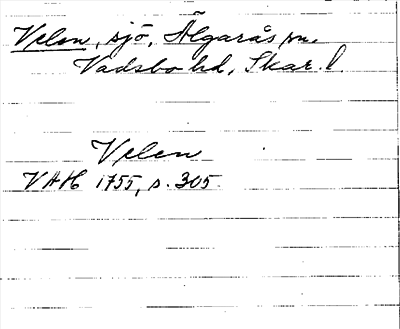 Velen, sjö, Älgarås sn.
Vadsbo hd, Skar. l.
Velen
VAH 1755, s. 305.